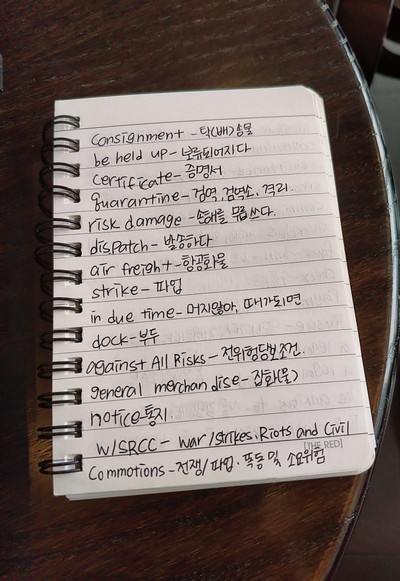 consignment - 탁(배)송물
be held up - 보류되어지다
certificate - 증명서
quarantine - 검역, 검역소, 격리.
risk damage - 손해를 무릅쓰다.
dispatch - 발송하다
air freight - 항공화물
strike - 파업
in due time - 머지않아, 때가되면
dock - 부두
against All Risks - 전위험담보조건.
general merchandise - 잡화물
notice 통지.
W/SRCC - war/strikes. Riots and Civil
[THE RED]
Commotions - 전쟁/파업. 폭동 및 소요위험